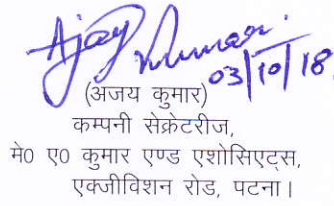 Ajay Kumar
03/10/18
(अजय कुमार)
कम्पनी सेक्रेटरीज,
मे0 ए0 कुमार एण्ड एशोसिएट्स,
एक्जीविशन रोड, पटना।